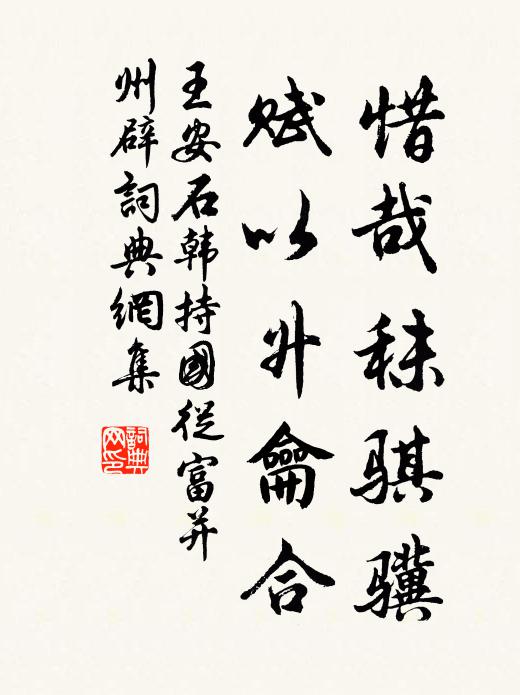 惜哉秣骐骥
赋以升龠合
王安石韩持國從富并
州辟詞典網集
詞典网印